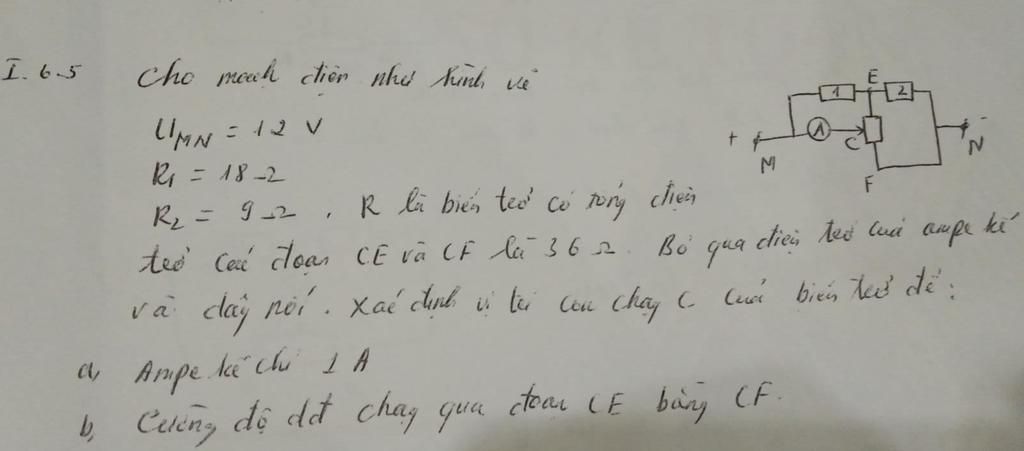 I.6.5 Cho mạch điện như hình vẽ
UMN = 12 V
R1 = 18 Ω
R2 = 9 Ω. R là biến trở có tổng điện
trở của đoạn CE và CF là 36 Ω. Bỏ qua điện trở của ampe kế
và dây nối. Xác định vị trí con chạy C của biến trở để:
a, Ampe kế chỉ 1 A
b, Cường độ dđ chạy qua đoạn CE bằng CF.
E
1
2
+
A
-
M
C
N
F